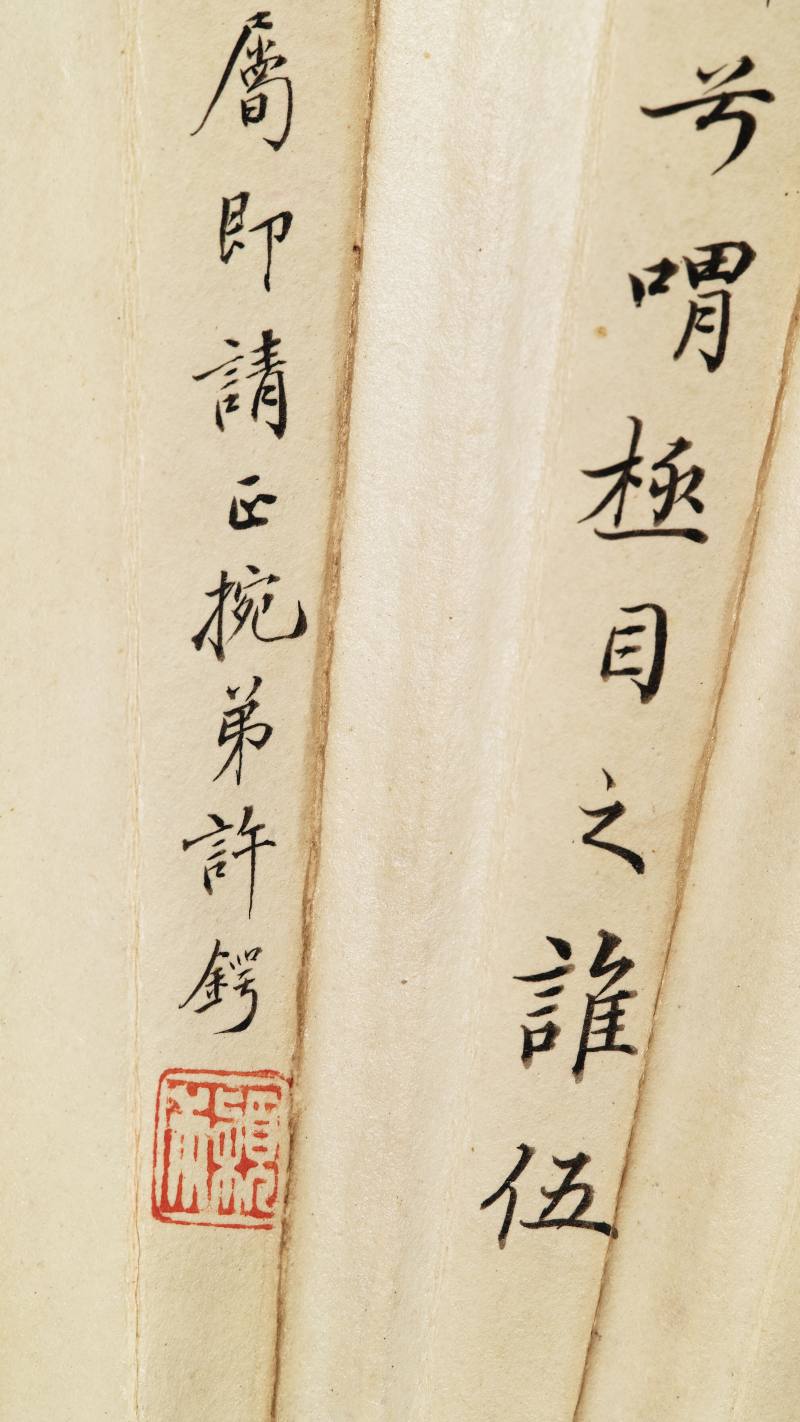 兮喟極目之誰伍
屬即請正捥弟許鍔